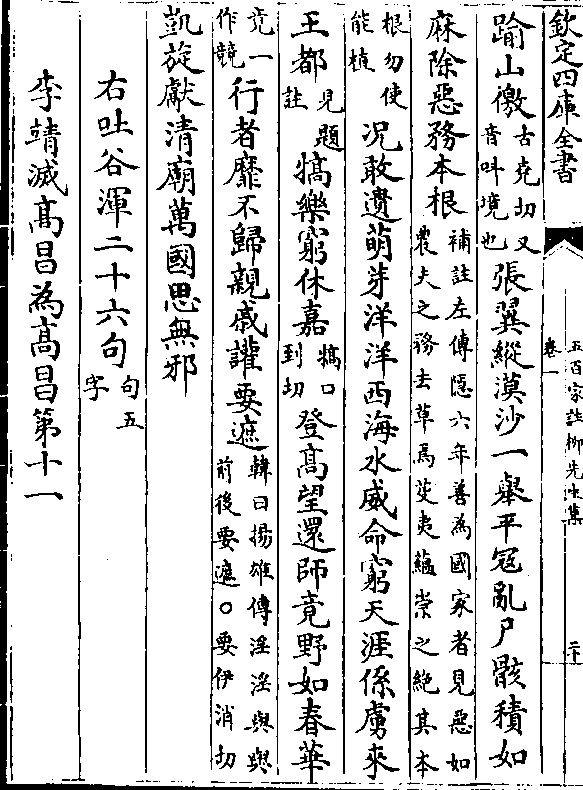 欽定四庫全書
卷一
五百家註柳先生集
二十
踰山徼古堯切又音叫境也張翼縱漠沙一舉平冦亂尸骸積如
麻除惡務本根補註左傳隠六年善為國家者見惡如農夫之務去草焉芟夷藴崇之絶其本
根勿使能植況敢遺萌芽洋洋西海水威命窮天涯係虜來
王都見題註犒樂窮休嘉犒口到切登髙望還師竟野如春華
竟一作競行者靡不歸親戚讙要遮韓曰揚雄傳淫淫與與前後要遮○要伊消切
凱旋獻清廟萬國思無邪
右吐谷渾二十六句句五字
李靖滅髙昌為髙昌第十一